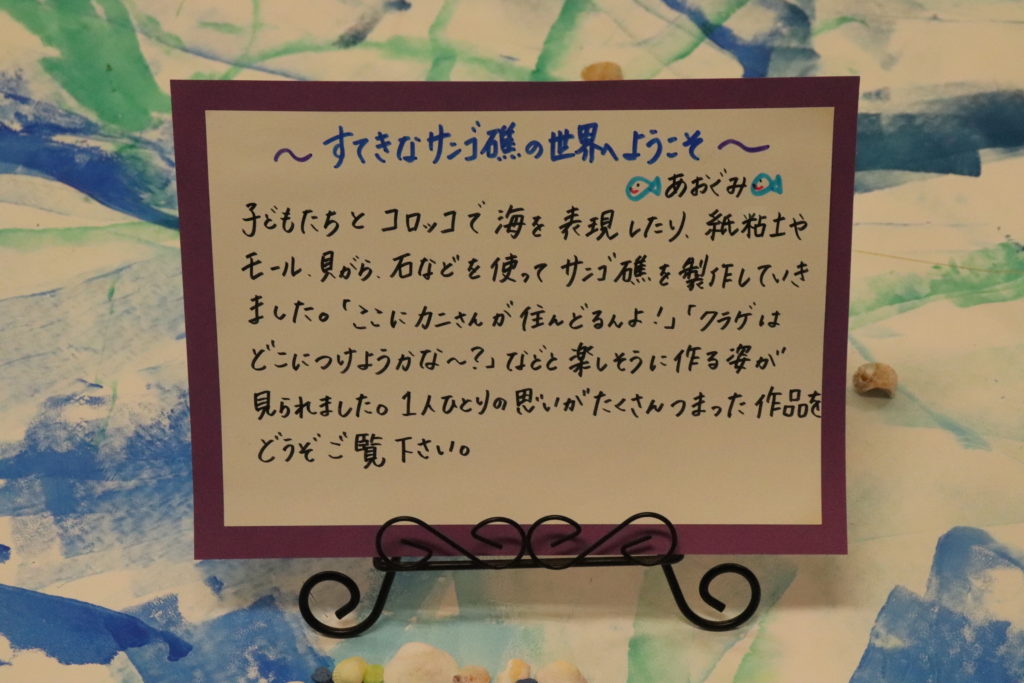 ～すてきなサンゴ礁の世界へようこそ～
あおぐみ
子どもたちとコロッコで海を表現したり、紙粘土や
モール、貝がら、石などを使ってサンゴ礁を製作していき
ました。「ここにカニさんが住んどるんよ！」「クラゲは
どこにつけようかな～？」などと楽しそうに作る姿が
見られました。1人ひとりの思いがたくさんつまった作品を
どうぞご覧下さい。